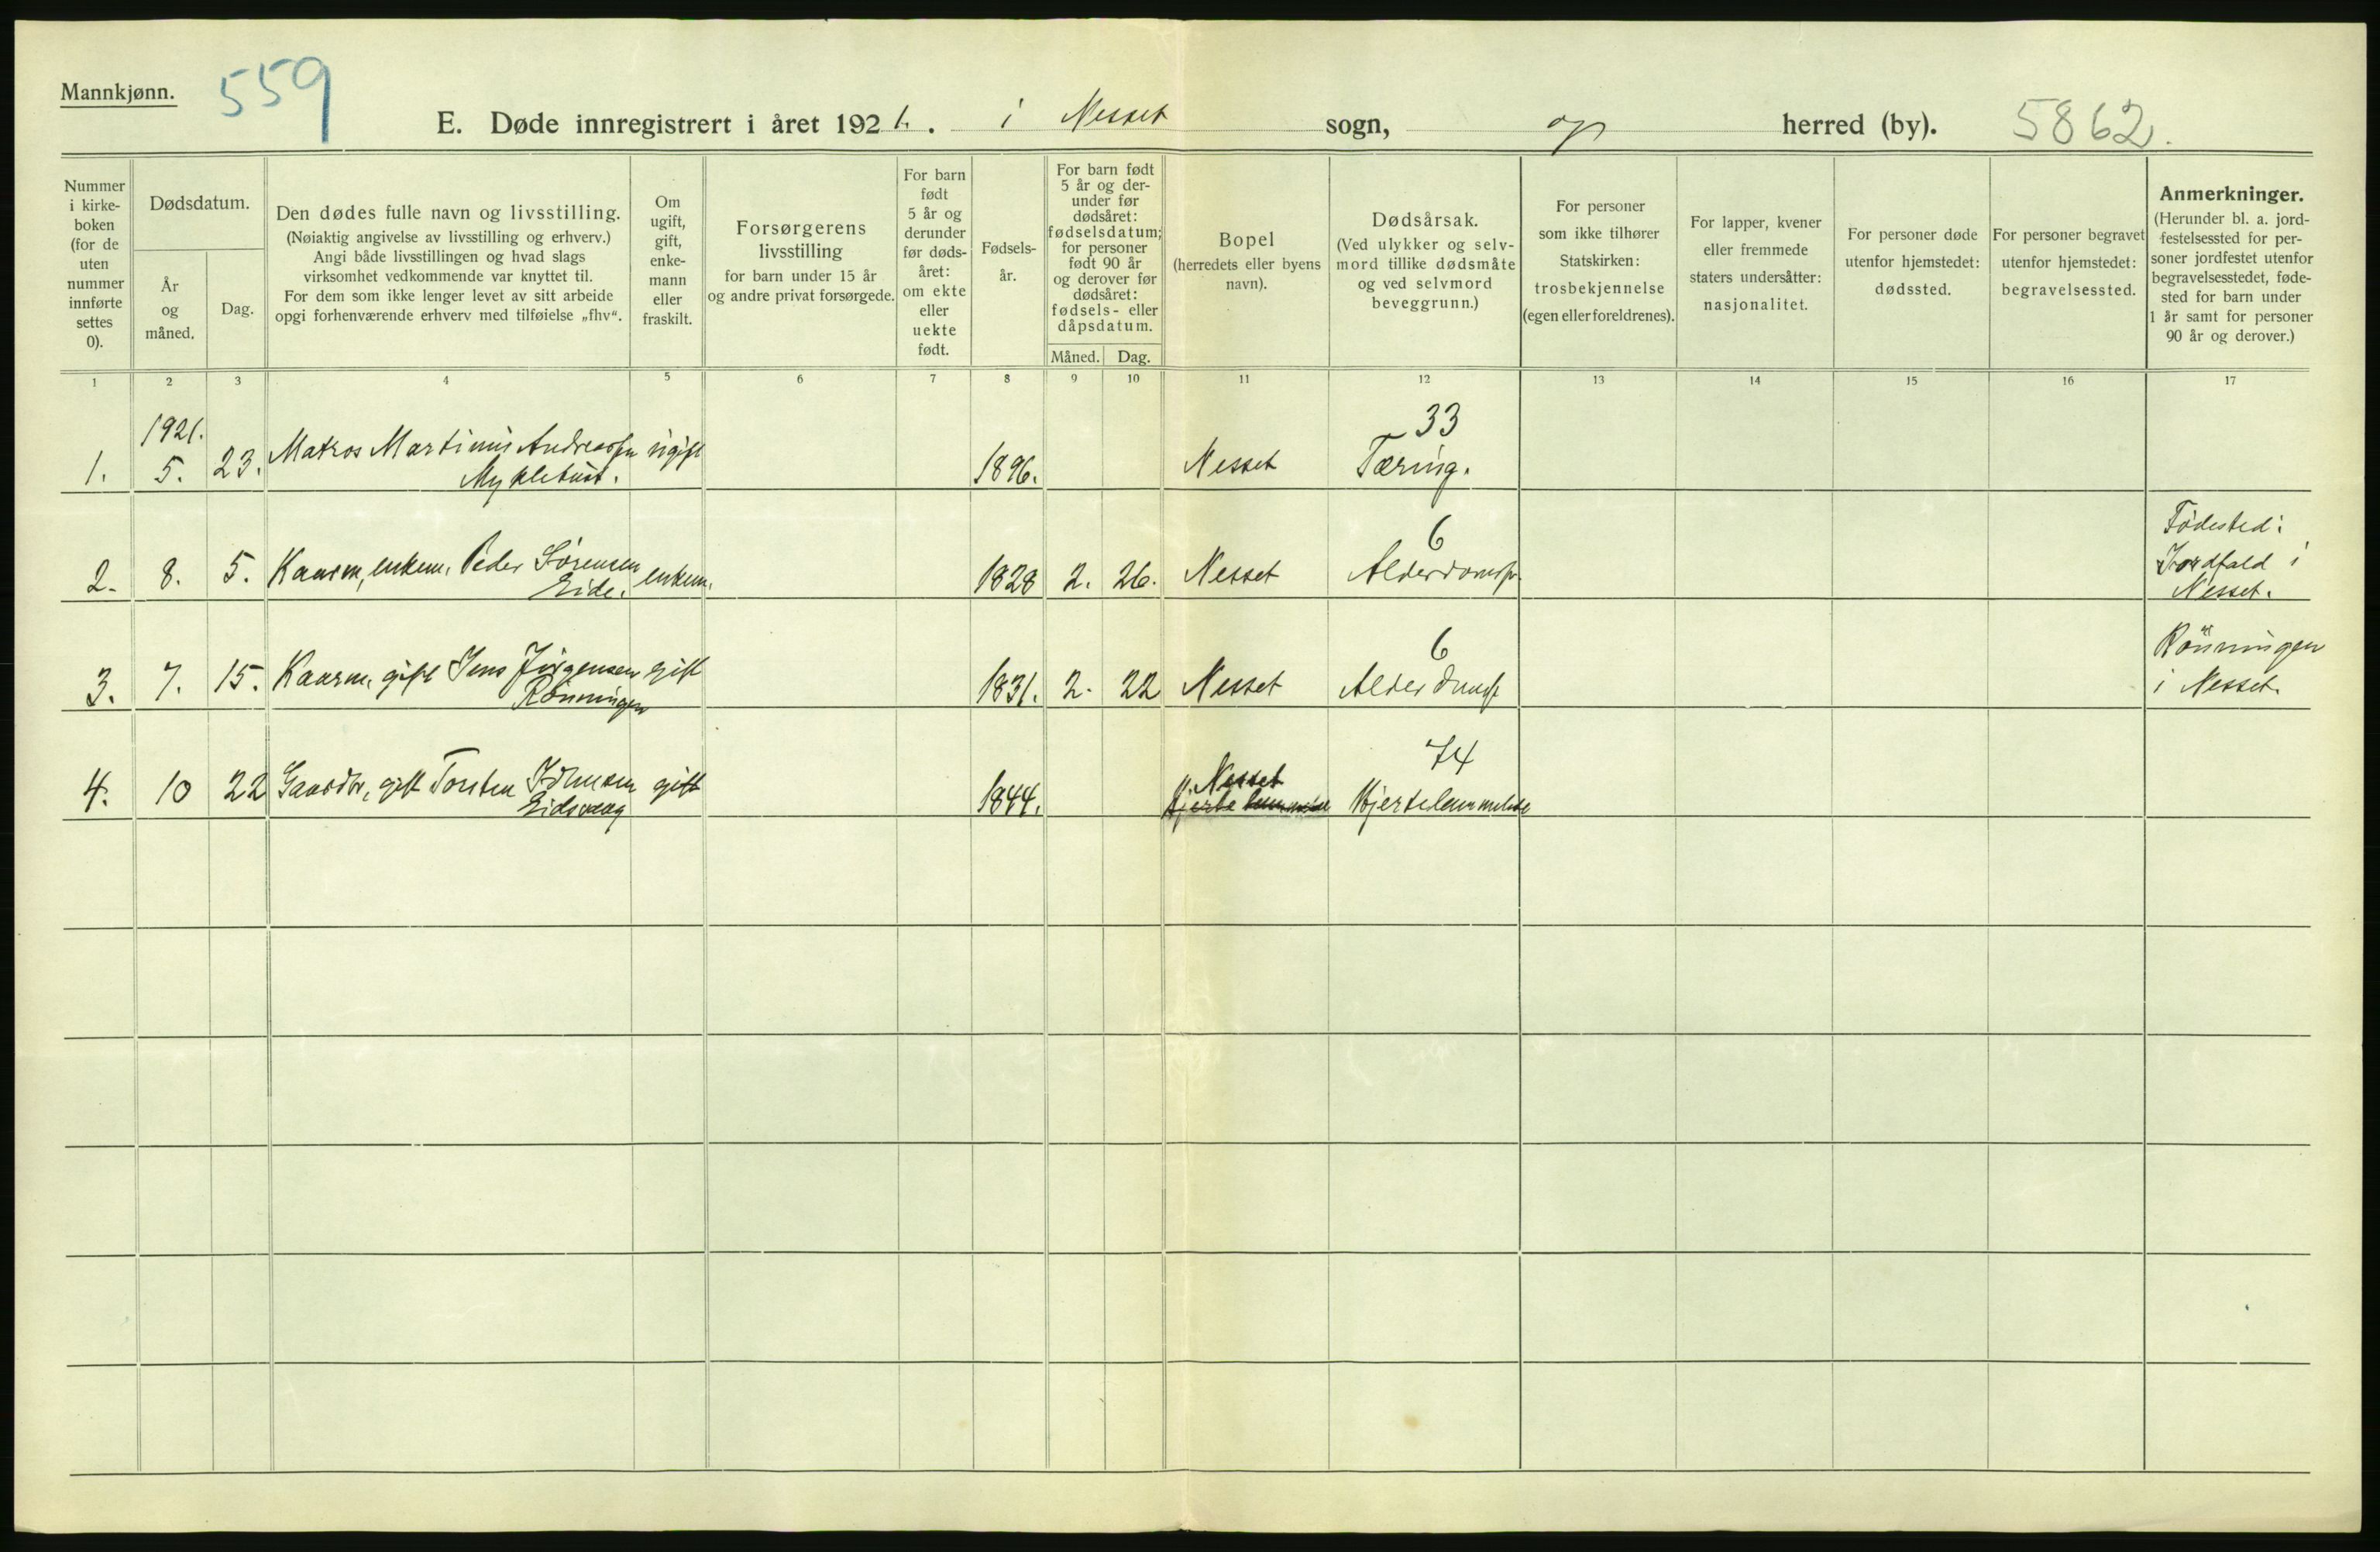 Mannkjønn.
559
E. Døde innregistrert i året 1921. i Nesset sogn, og herred (by). 5862.
Nummer i kirkeboken (for de uten nummer innførte settes 0).
Dødsdatum.
År og måned.
Dag.
Den dødes fulle navn og livsstilling.
(Nøiaktig angivelse av livsstilling og erhverv.)
Angi både livsstillingen og hvad slags
virksomhet vedkommende var knyttet til.
For dem som ikke lenger levet av sitt arbeide
opgi forhenværende erhverv med tilføielse „fhv“.
Om ugift, gift, enkemann eller fraskilt.
Forsørgerens livsstilling
for barn under 15 år
og andre privat forsørgede.
For barn født 5 år og derunder før dødsåret: om ekte eller uekte født.
Fødselsår.
For barn født 5 år og derunder før dødsåret: fødselsdatum; for personer født 90 år og derover før dødsåret: fødsels- eller dåpsdatum.
Måned. Dag.
Bopel
(herredets eller byens navn).
Dødsårsak.
(Ved ulykker og selvmord tillike dødsmåte og ved selvmord beveggrunn.)
For personer som ikke tilhører Statskirken: trosbekjennelse (egen eller foreldrenes).
For lapper, kvener eller fremmede staters undersåtter: nasjonalitet.
For personer døde utenfor hjemstedet: dødssted.
For personer begravet utenfor hjemstedet: begravelsessted.
Anmerkninger.
(Herunder bl. a. jordfestelsessted for personer jordfestet utenfor begravelsesstedet, fødested for barn under 1 år samt for personer 90 år og derover.)
1 2 3 4 5 6 7 8 9 10 11 12 13 14 15 16 17
1921. 33
1. 5. 23. Matros Martinus Andreassen ugift 1896. Nesset Tæring.
Myklebust.
6 Födested:
2. 8. 5. Kaarm, enkem. Peder Sörensen enkem. 1828 2. 26. Nesset Alderdomssv. Jordfald i
Eide. Nesset.
6 Rönningen
3. 7. 15. Kaarm, gift Jens Jörgensen gift 1831. 2. 22 Nesset Alderdomssv i Nesset.
Rönningen
Nesset 74
4. 10 22 Gaardbr, gift Torsten gift 1844. Hjertelammelse Hjertelammelse
Eidsvaag